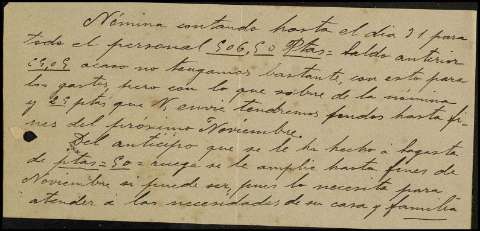 Nómina contando hasta el dia 31 para
todo el personal 506,50 Ptas = Saldo anterior
acaso no tengamos bastante, con esto para
los gastos, pero con lo que sobre de la nómina
y 25 ptas que V. envie tendremos fondos hasta fi-
nes del próximo Noviembre.
Del anticipo que se le ha hecho a Sagasta
de ptas = 50 = ruega se le amplie hasta fines de
Noviembre si puede ser, pues lo necesita para
atender á las necesidades de su casa y familia